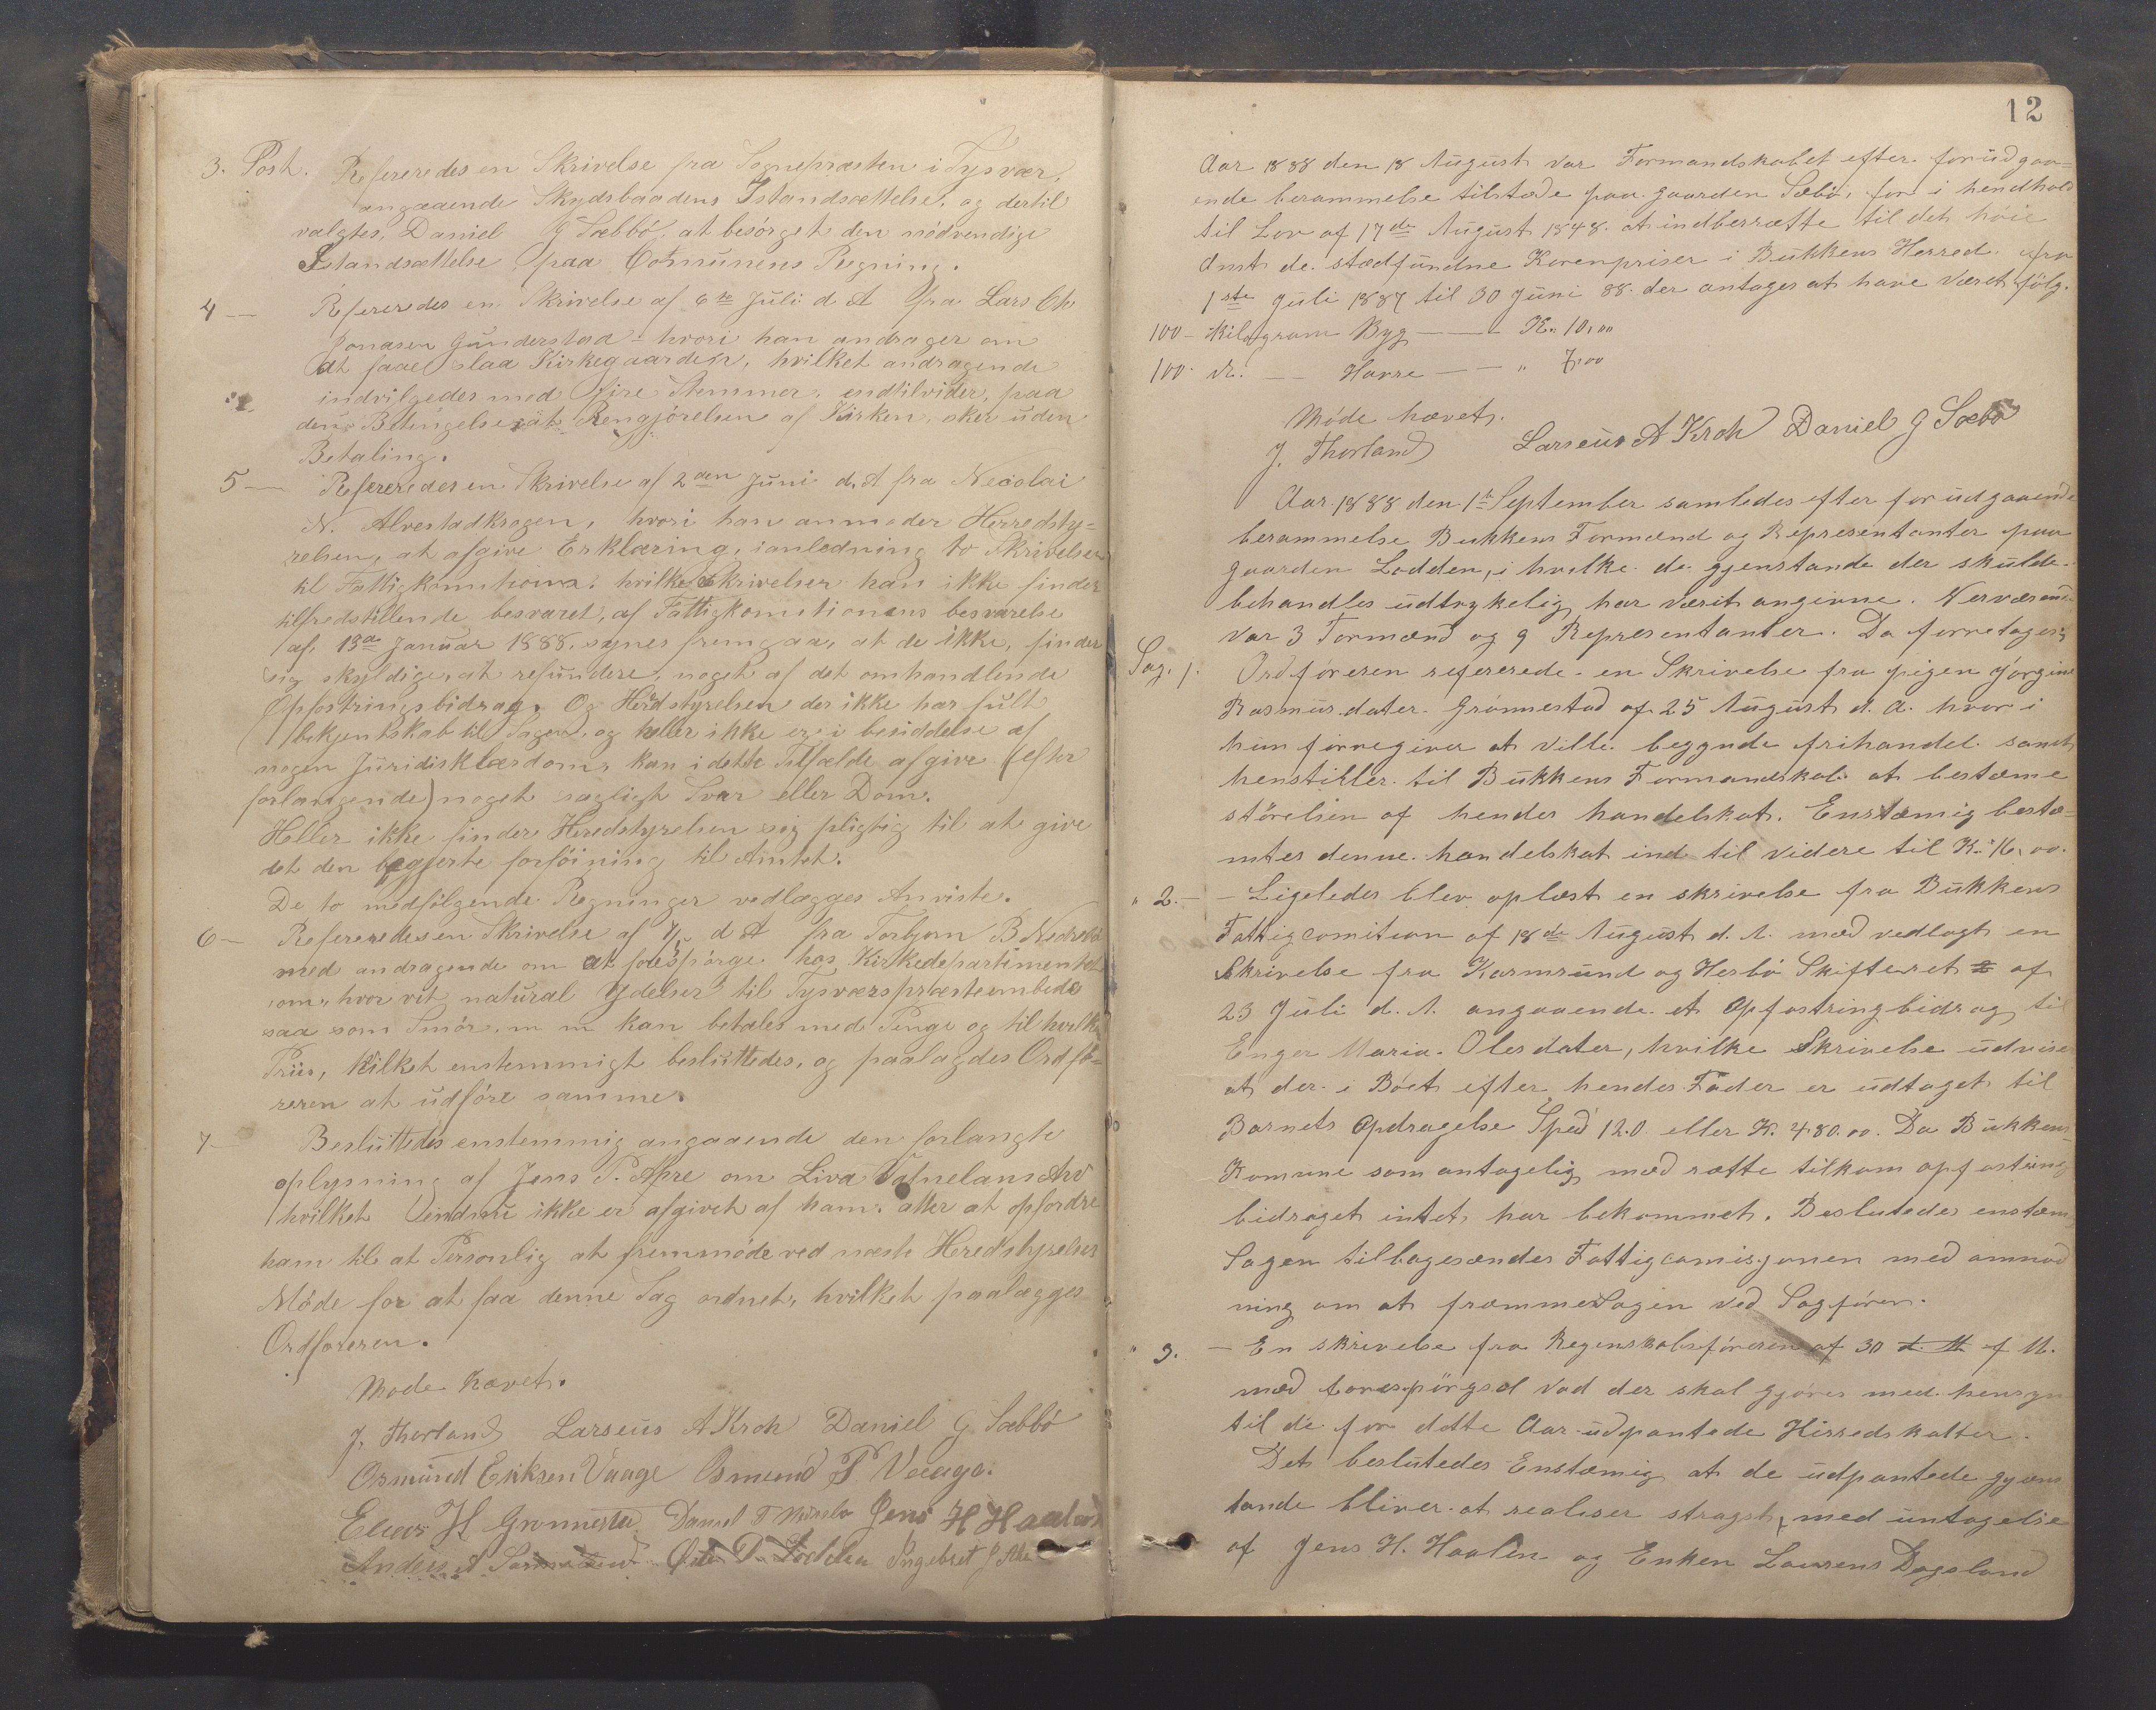 3. Post. Refereredes en Skrivelse fra Sognepræsten i Tysvær,
angaaende Skydsbaadens Istandsættelse, og dertil
valgtes, Daniel G Sæbbö, at besörget den nödvendige
Istandsættelse paa Comunens Regning.
4 — Refereredes en Skrivelse af 6te Juli d. A fra Lars Chr
Jonasen Gunderstad - hvori han andrager om
at faae slaa Kirkegaarden, hvilket andragende
indvilgedes med fire Stemmer, indtilvider, paa
den Betingelse, at Rengjörelsen af Kirken, sker uden
Betaling.
5 — Refereredes en Skrivelse af 2den Juni d. A fra Necolai
N. Alvestadkragen, hvori han anmoder Herredsty=
relsen, at afgive Erklæring, ianledning to Skrivelser
til Fattigkommitionen, hvilke Skrivelser han ikke finder
tilfredstillende besvaret, af Fattigkomitionens besvarelse
af 13de Januar 1888, synes fremgaa, at de ikke, finder
sig skyldiger at refundere, noget af det omhandlende
Opfostringsbidrag. Og Herdstyrelsen der ikke har fult
bekjentskab til Sagen, og heller ikke er i besiddelse af
nogen Juridisklærdom, kan i dette Tilfælde afgive (efter
forlangende) noget sagligt Svar eller Dom.
Heller ikke finder Heredstyrelsen sig pligtig til at give
det den begjerte forföining til Amtet.
De to medfölgende Regninger vedlægges Anviste.
6 — Refereredes en Skrivelse af d A fra Torbjorn B Nedrebö
med andragende om at forespörge hos Kirkedepartimentet
om, hvor vit natural Ydelser til Tysværspræsteembede
saa som Smör, m m kan betales med Penge og til hvilken
Priis, hvilket enstemmigt besluttedes, og paalagdes Ordfö=
reren at udföre samme.
7 — Besluttedes enstemmig angaaende den forlangte
oplysning af Jens P. Apre om Liva
hvilket endnu ikke er afgivet af ham, atter at opfordre
ham til at Personlig at fremmöde ved næste Heredstyrelses
Möde for at faa denne Sag ordnet, hvilket paalægges
Ordföreren.
Mode hævet.
J. Thorland Larseus A Kroh Daniel G. Sæbbö
Osmund Eriksen Vaage Osmund P. Vaaga.
Elias H Grønnestad Daniel T Jens H Haaland
Anders A Ole D. Lodden Ingebret J
12
Aar 1888 den 18 August var Formandskabet efter forudgaa=
ende berammelse tilstede paa gaarden Sæbö, for i hendhold
til Lov af 17de August 1848 at indberrætte til det höie
Amt de stædfundne Kornpriser i Bukkens Herred fra
1ste Juli 1887 til 30 Juni 88. der antages at have været fölg.
100 - Kilogram Byg — K. 10,00
100. dt. — Havre — " 7,00
Möde hævet.
J. Thorland Larseus A Kroh Daniel G Sæbö
Aar 1888 den 1ste September samledes efter forudgaaende
berammelse Bukkens Formænd og Representanter paa
gaarden Lodden, i hvilke de gjenstande der skulde
behandles udtrykelig har værit angivne. Nerværende
var 3 Formænd og 9 Representanter. Da forretages:
Sag. 1. Ordföreren refererede en Skrivelse fra pigen Jörgine
Rasmusdater Grönnestad af 25 August d. A. hvor i
hun forregiver at ville begynde frihandel samt
henstiller til Bukkens Formandskab at bestæme
störelsen af hendes handelskat. Enstæmig bestæ=
mtes denne handelskat ind til videre til K. 16,00.
" 2. — Ligeledes blev oplæst en skrivelse fra Bukkens
Fattigcomition af 18de August d. A. med vedlagt en
Skrivelse fra Karmsund og Hesbö Skifteret af
23 Juli d. A. angaaende et Opfostringbidrag til
Enger Maria Olesdater, hvilke Skrivelse udviser
at der i Böet efter hendes Fader er udtaget til
Barnets Opdragelse Sped 120 eller K. 480.00. Da Bukkens
Komune som antagelig med rætte tilkom opfostring
bidraget intet har bekommet. Beslutedes enstæm
Sagen tilbagesændes Fattigcomisjonen med anmod
ning om at fræmme Sagen ved Sagförer.
" 3. — En skrivelse fra Regenskabsföreren af 30 f. M.
med forespörgsel vad der skal gjöres med hensyn
til de for dette Aar udpantede Hirredskatter.
Det beslutedes Enstæmig at de udpantede gjens
tande bliver at realiser stragst, med untagelse
af Jens H. Haalan og Enken Laurens Dagsland